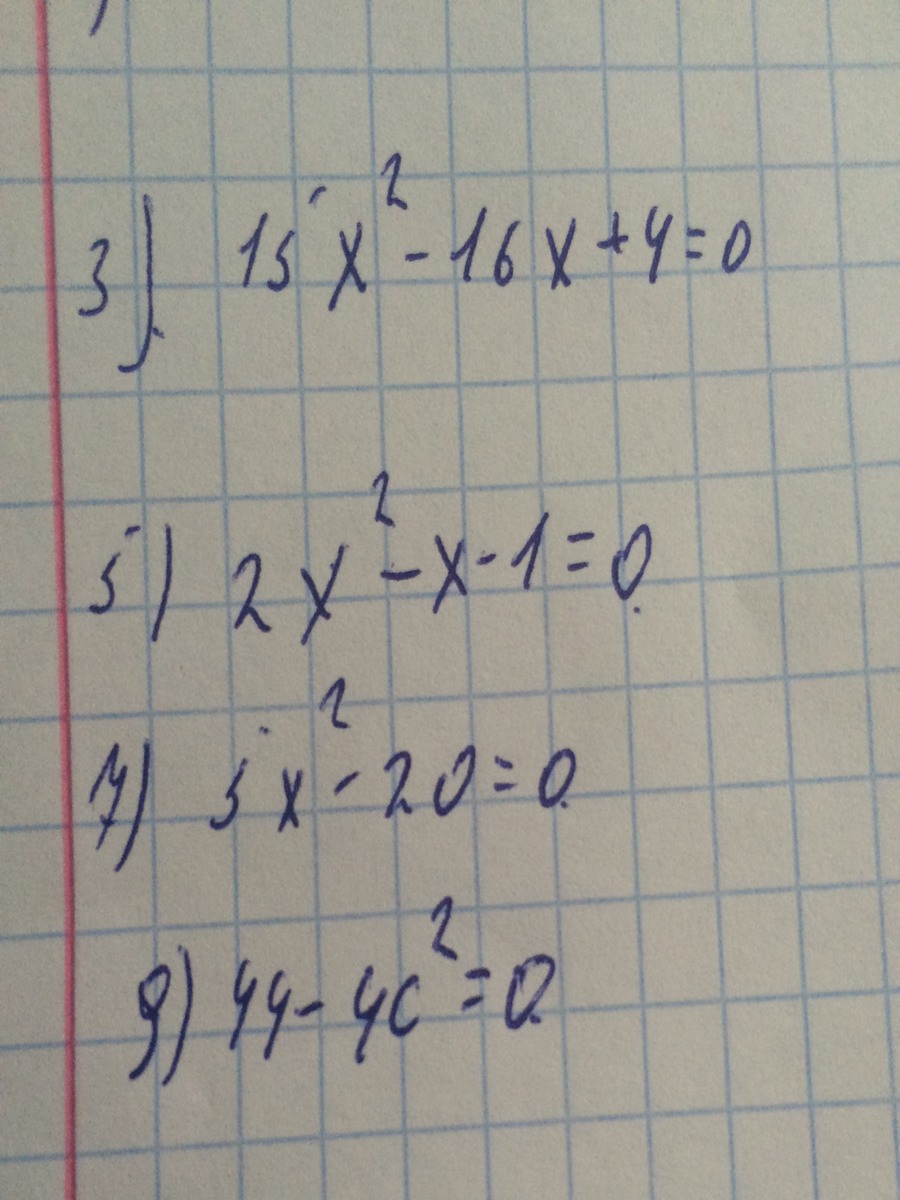 3) 15x² - 16x + 4 = 0
5) 2x² - x - 1 = 0
7) 5x² - 20 = 0
9) 44 - 4c² = 0